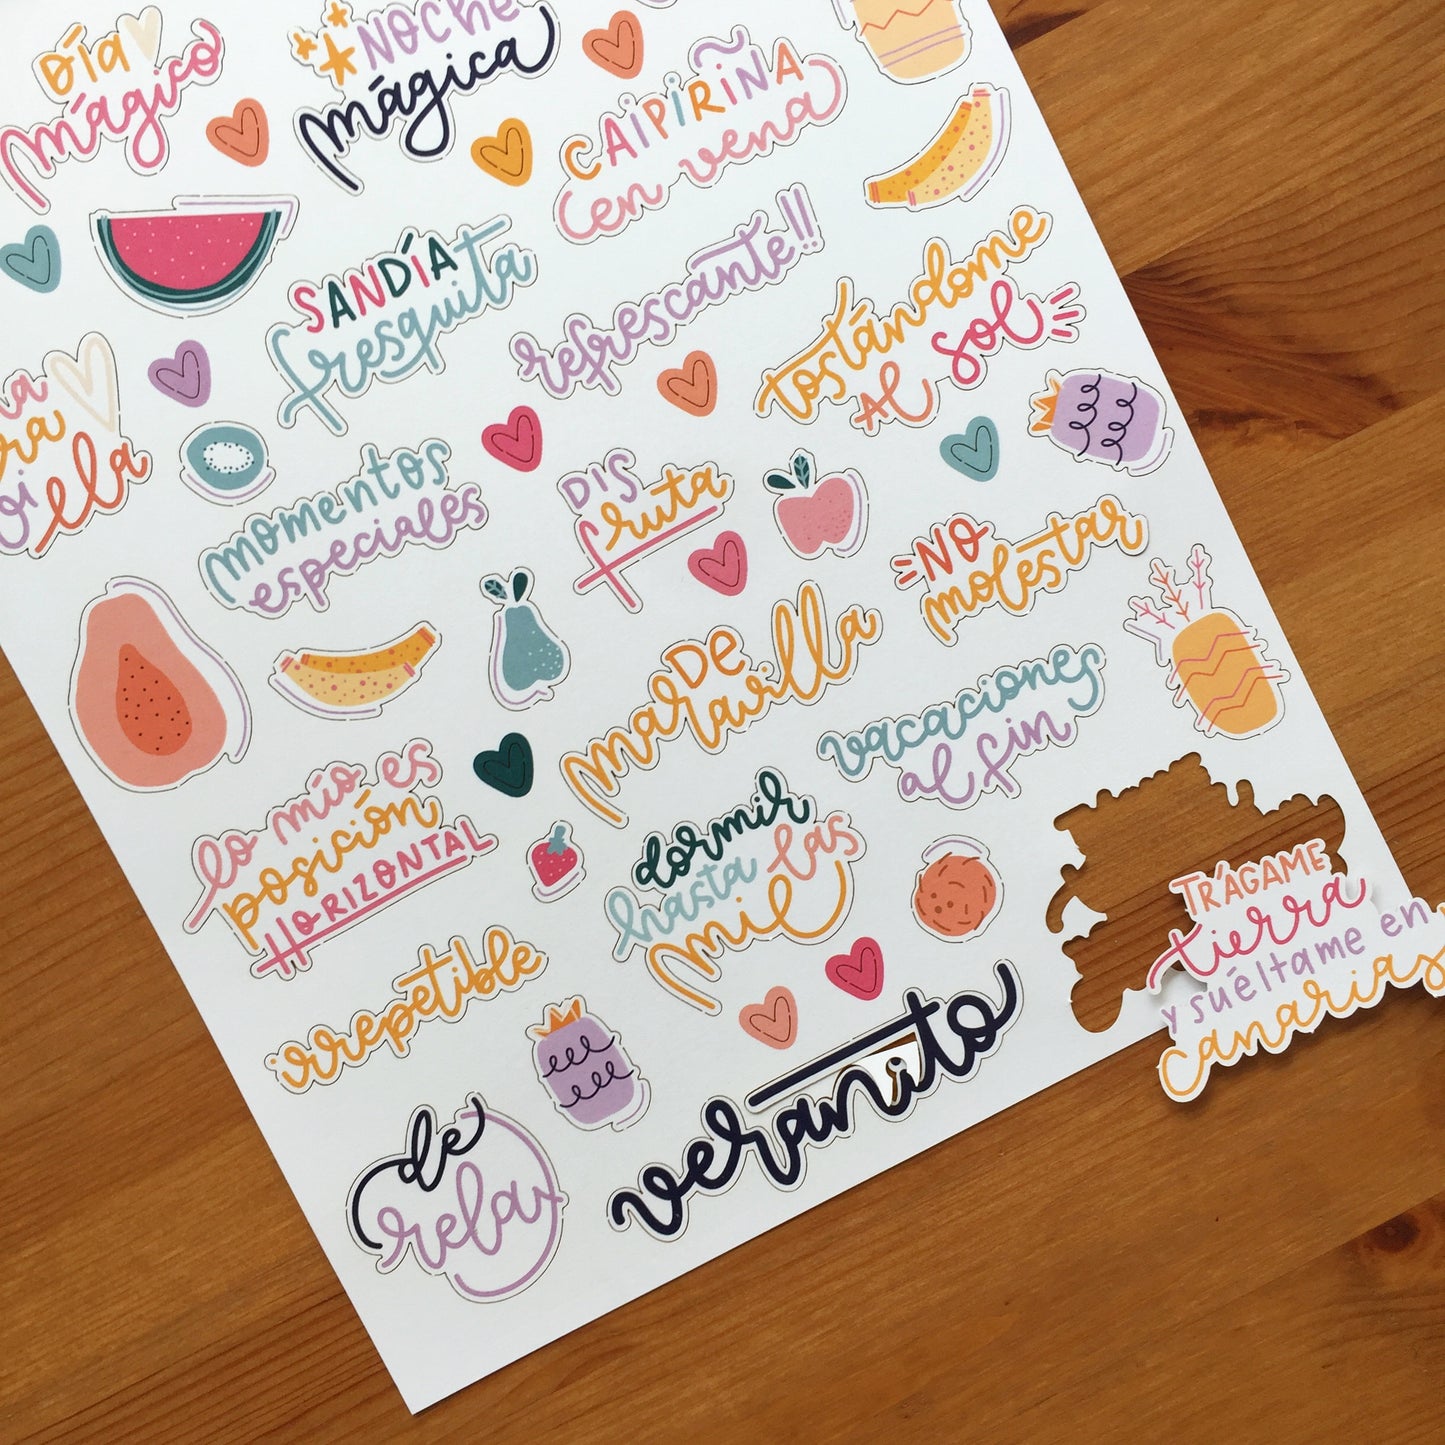 Día
mágico
NOCHE
mágica
CAIPIRIÑA
en vena
SANDÍA
fresquita
refrescante!!
tostándome
AL sol
ella
momentos
especiales
DIS
fruta
NO
molestar
DE
maravilla
vacaciones
al fin
lo mío es
posición
HORIZONTAL
dormir
hasta las
mil
TRÁGAME
tierra
y suéltame en
canarias
irrepetible
veranito
de
relax